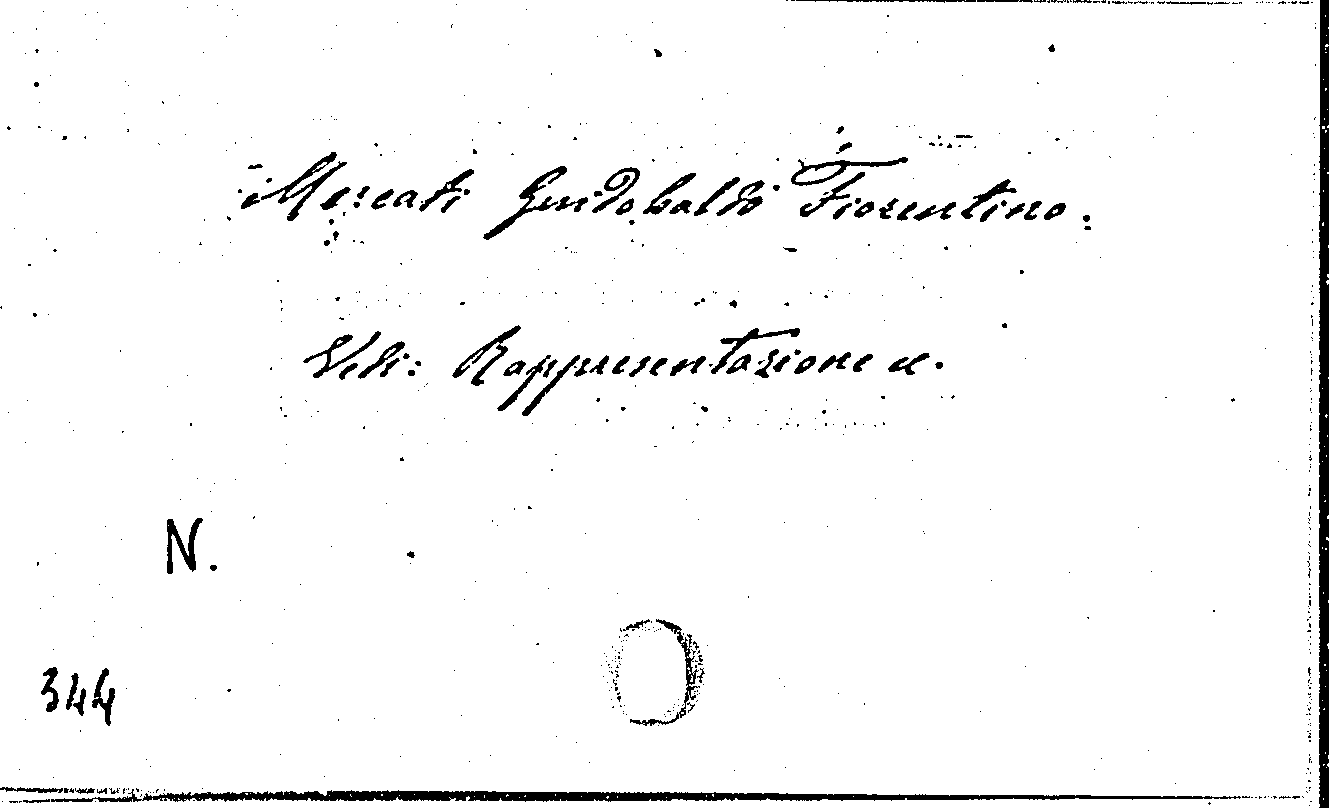 Mercati Guidobaldo Fiorentino.
Vedi: Rappresentazione ec.
N.
344